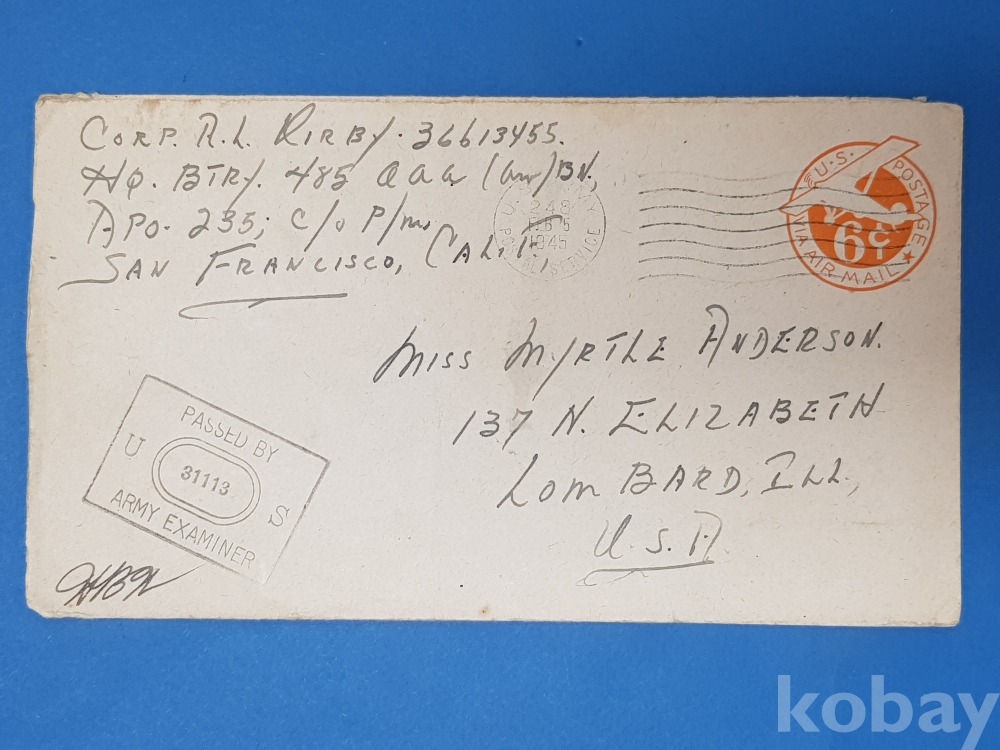 CORP. R.L. KIRBY. 36613455.
HQ. BTRY. 485 AAA (AW) BN,
APO. 235; C/O P/M
SAN FRANCISCO, CALIF,
U.S. ARMY
248
FEB 6
1945
POSTAL SERVICE
U.S. POSTAGE
6¢
VIA AIR MAIL
MISS MYRTLE ANDERSON.
137 N. ELIZABETH
LOMBARD, ILL.,
U.S.A
PASSED BY
U 31113 S
ARMY EXAMINER
kobay